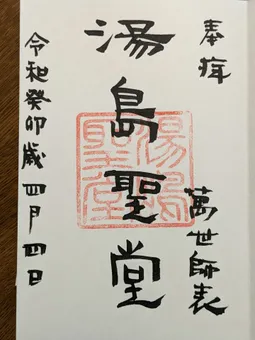 奉拜
萬世師表
湯島聖堂
湯島聖堂
令和癸卯歳四月四日